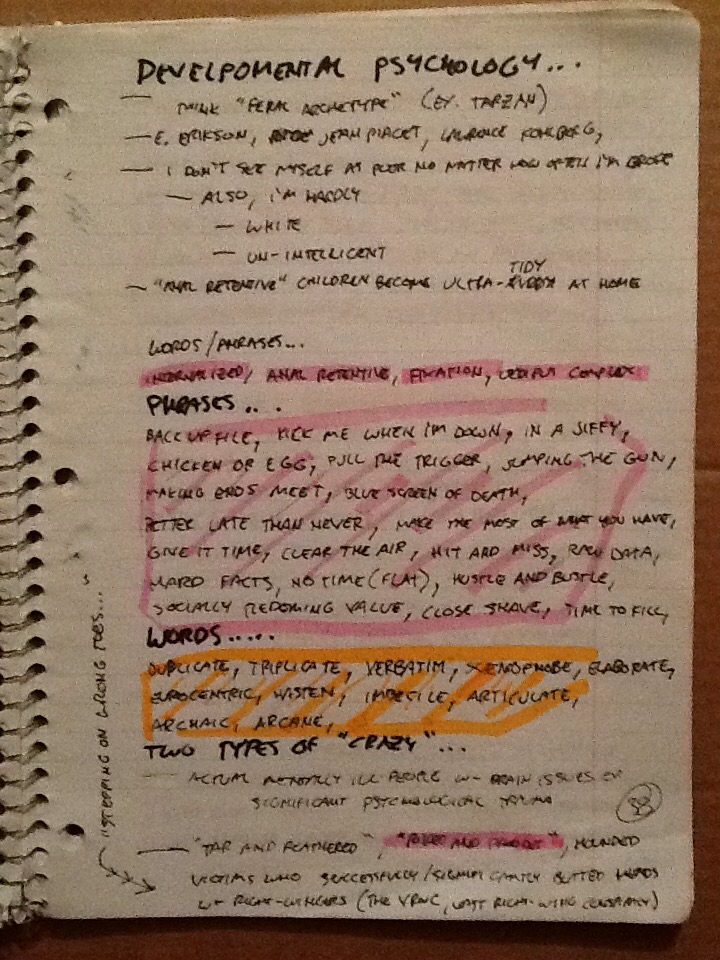 DEVELPOMENTAL PSYCHOLOGY...
— THINK "FERAL ARCHETYPE" (EX. TARZAN)
— E. ERIKSON, JEAN PIAGET, LAURENCE KOHLBERG,
— I DON'T SEE MYSELF AS POOR NO MATTER HOW OFTEN I'M BROKE
— ALSO, I'M HARDLY
— WHITE
— UN-INTELLIGENT
TIDY
— "ANAL RETENTIVE" CHILDREN BECOME ULTRA- AT HOME
WORDS/PHRASES...
INTERNALIZED/ ANAL RETENTIVE, FIXATION, OEDIPUS COMPLEX
PHRASES...
BACK UP FILE, KICK ME WHEN I'M DOWN, IN A JIFFY,
CHICKEN OR EGG, PULL THE TRIGGER, JUMPING THE GUN,
MAKING ENDS MEET, BLUE SCREEN OF DEATH,
BETTER LATE THAN NEVER, MAKE THE MOST OF WHAT YOU HAVE,
GIVE IT TIME, CLEAR THE AIR, HIT AND MISS, RAW DATA,
HARD FACTS, NO TIME (FLAT), HUSTLE AND BUSTLE,
SOCIALLY REDEMING VALUE, CLOSE SHAVE, TIME TO KILL,
WORDS.....
DUPLICATE, TRIPLICATE, VERBATIM, XENOPHOBE, ELABORATE,
EUROCENTRIC, IMBECILE, ARTICULATE,
ARCHAIC, ARCANE,
TWO TYPES OF "CRAZY"...
— ACTUAL MENTALLY ILL PEOPLE W- BRAIN ISSUES OR
SIGNIFICANT PSYCHOLOGICAL TRAUMA
— "TAR AND FEATHERED", HOUNDED
VICTIMS WHO SUCCESSFULLY/SIGNIFICANTLY BUTTED HEADS
W- RIGHT-WINGERS (THE VRWC, VAST RIGHT-WING CONSPIRACY)
"STEPPING ON WRONG TOES..."